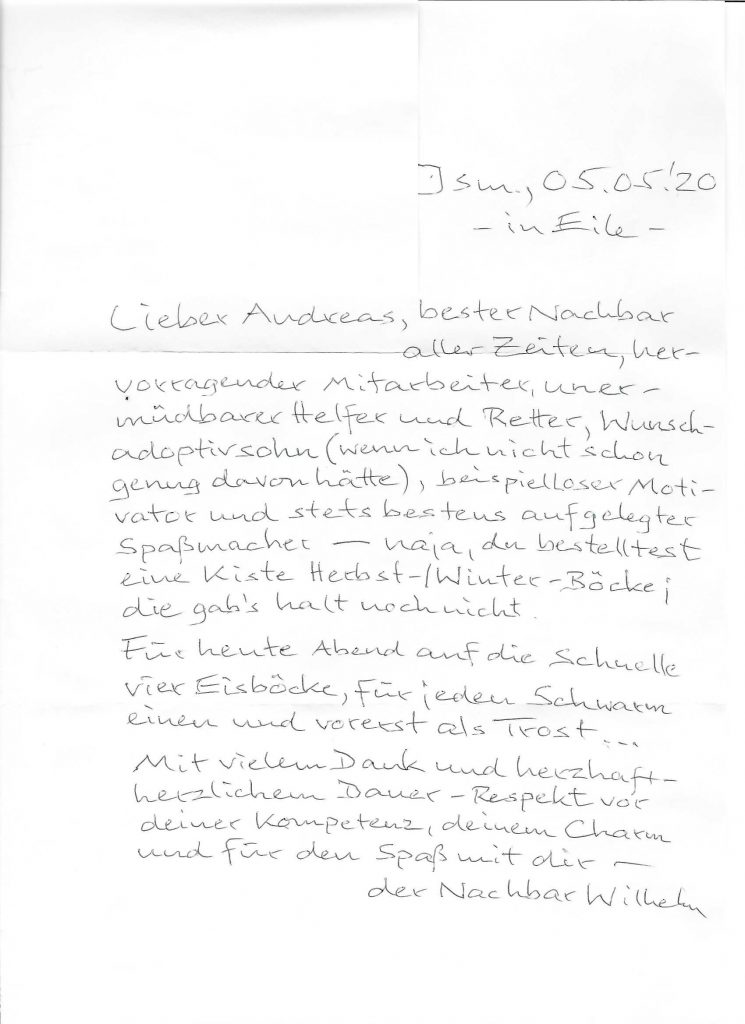 Ism., 05.05.'20
- in Eile -
Lieber Andreas, bester Nachbar
aller Zeiten, her-
vorragender Mitarbeiter, uner-
müdbarer Helfer und Retter, Wunsch-
adoptivsohn (wenn ich nicht schon
genug davon hätte), beispielloser Moti-
vator und stets bestens aufgelegter
Spaßmacher — naja, du bestelltest
eine Kiste Herbst-/Winter-Böcke;
die gab's halt noch nicht.
Für heute Abend auf die Schnelle
vier Eisböcke, für jeden Schwarm
einen und vorerst als Trost...
Mit vielem Dank und herzhaft-
herzlichem Dauer-Respekt vor
deiner Kompetenz, deinem Charm
und für den Spaß mit dir —
der Nachbar Wilhelm